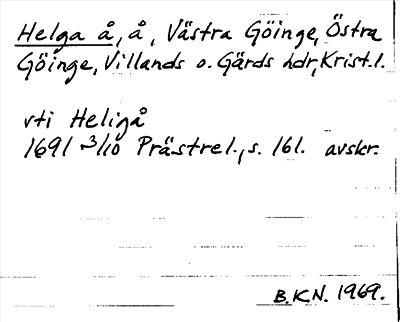 Helga å, å, Västra Göinge, Östra
Göinge, Villands o. Gärds hdr, Krist. l.
vti Heligå
1691 3/10 Prästrel., s. 161. avskr.
B.K.N. 1969.